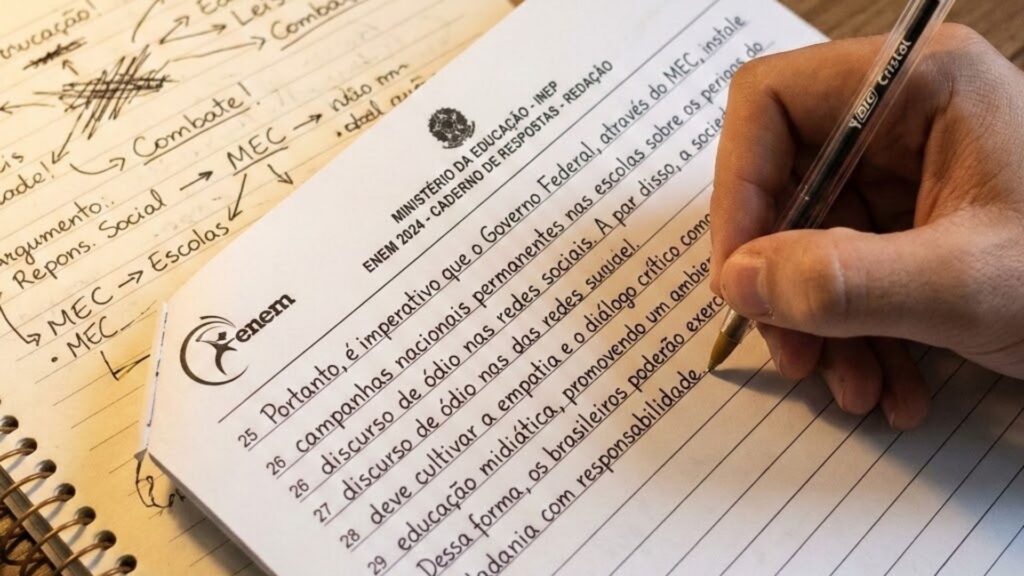 Combate!
MEC → não
argumento:
Repons. Social
MEC → Escolas
• MEC
MINISTÉRIO DA EDUCAÇÃO - INEP
ENEM 2024 - CADERNO DE RESPOSTAS - REDAÇÃO
enem
25 Portanto, é imperativo que o Governo Federal, através do MEC, instale
26 campanhas nacionais permanentes nas escolas sobre os perigos do
26 discurso de ódio nas redes sociais. A par disso, a socie
27 discurso de ódio nas das redes
28 deve cultivar a empatia e o diálogo crítico como
29 educação midiática, promovendo um ambie
Dessa forma, os brasileiros poderão exerc
dadania com responsabilidade.
Cristal